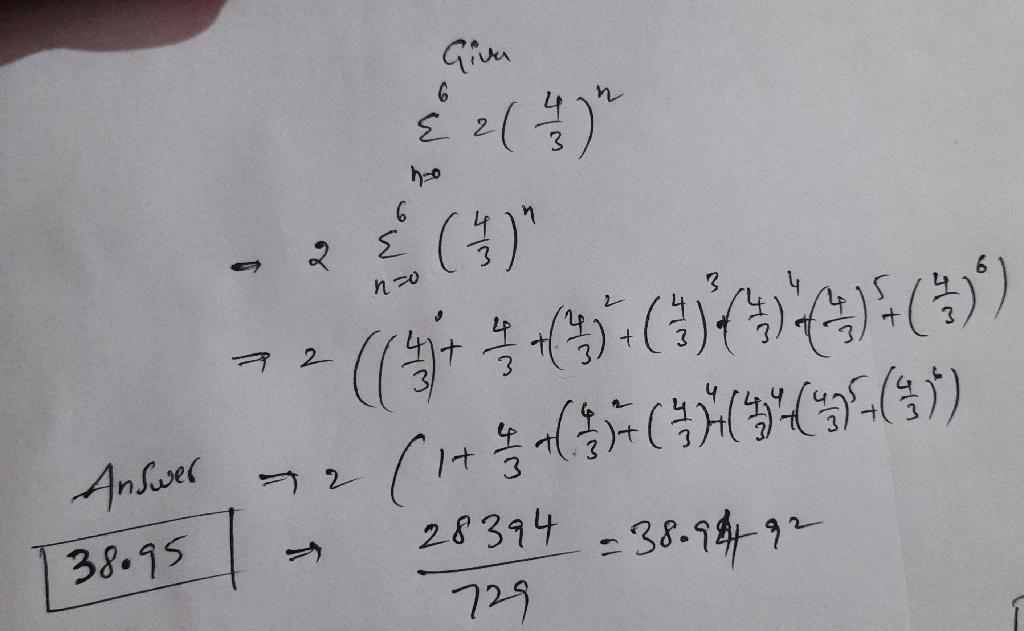 Given
6
Σ 2(4/3)^n
n=0
= 2 Σ (4/3)^n
6
n=0
⇒ 2 ((4/3)^0 + 4/3 + (4/3)^2 + (4/3)^3 + (4/3)^4 + (4/3)^5 + (4/3)^6)
Answer ⇒ 2 (1 + 4/3 + (4/3)^2 + (4/3)^4 + (4/3)^4 + (4/3)^5 + (4/3)^6)
38.95 ⇒ 28394/729 = 38.9492